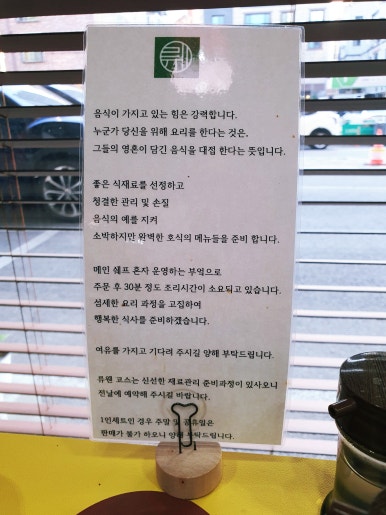 음식이 가지고 있는 힘은 강력합니다.
누군가 당신을 위해 요리를 한다는 것은,
그들의 영혼이 담긴 음식을 대접 한다는 뜻입니다.
좋은 식재료를 선정하고
청결한 관리 및 손질
음식의 예를 지켜
소박하지만 완벽한 호식의 메뉴들을 준비 합니다.
메인 쉐프 혼자 운영하는 부엌으로
주문 후 30분 정도 조리시간이 소요되고 있습니다.
섬세한 요리 과정을 고집하여
행복한 식사를 준비하겠습니다.
여유를 가지고 기다려 주시길 양해 부탁드립니다.
류원 코스는 신선한 재료관리 준비과정이 있사오니
전날에 예약해 주시길 바랍니다.
1인세트인 경우 주말 및 공휴일은
판매가 불가 하오니 양해 부탁드립니다.